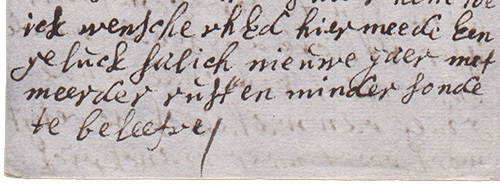 ick wensche rhEd hier meede Een
geluck salich nieuwe jaer met
meerder rust en minder sonde
te beleefve /